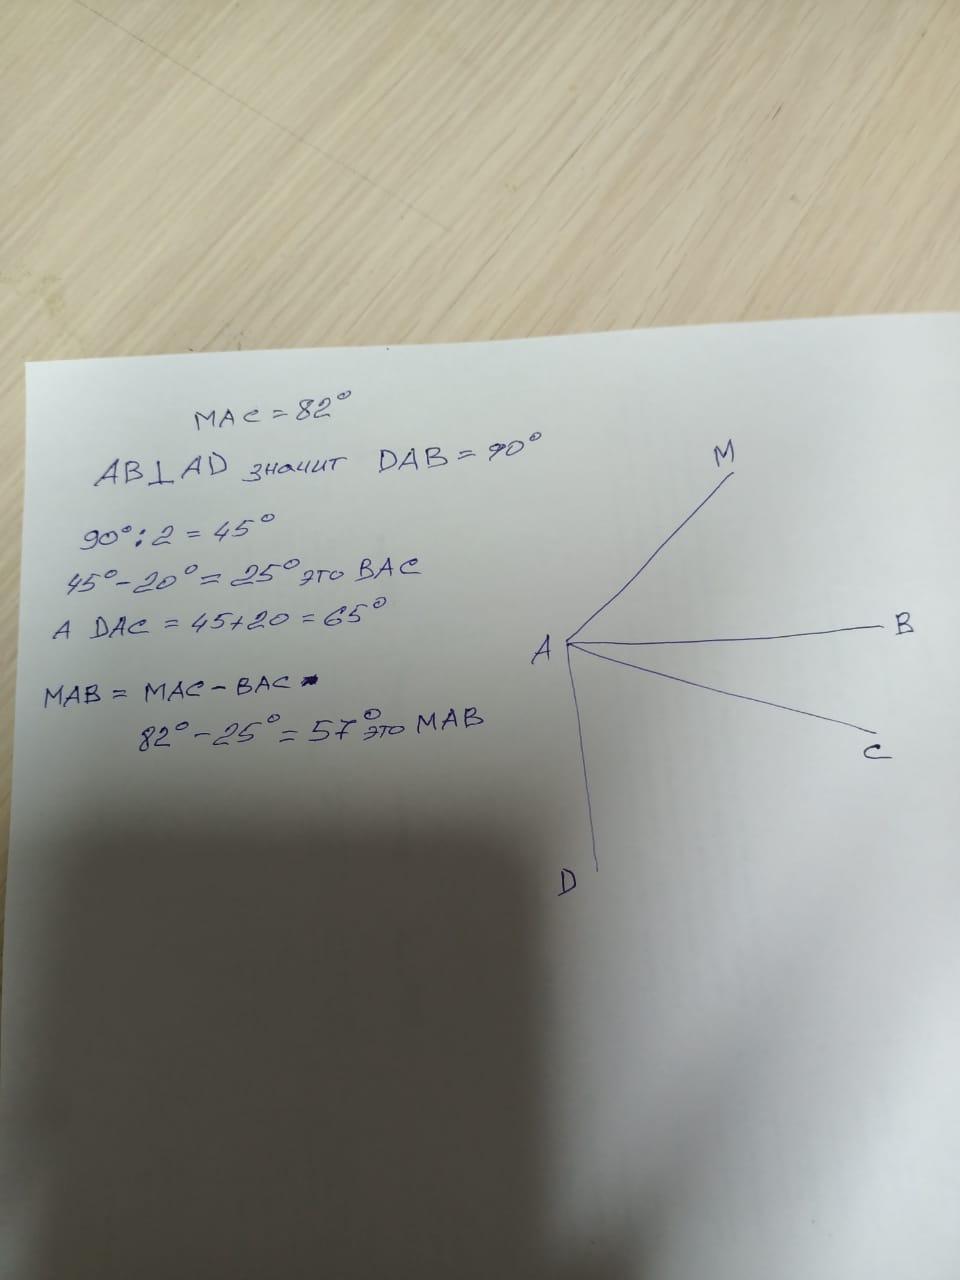 MAC = 82°
AB⊥AD значит DAB = 90°
90° : 2 = 45°
45° - 20° = 25° это BAC
A DAC = 45+20 = 65°
MAB = MAC - BAC
82° - 25° = 57° это MAB
M
B
A
C
D